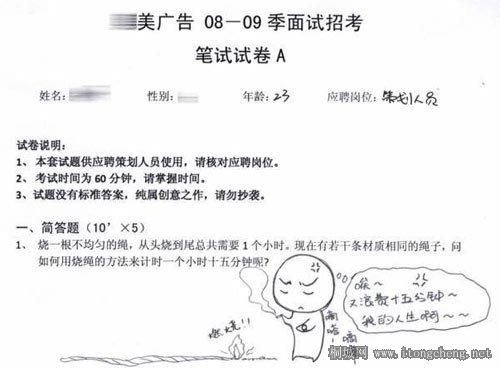 美广告 08－09 季面试招考
笔试试卷 A
姓名： 性别： 年龄：23 应聘岗位：策划人员
试卷说明：
1、 本套试题供应聘策划人员使用，请核对应聘岗位。
2、 考试时间为 60 分钟，请掌握时间。
3、试题没有标准答案，纯属创意之作，请勿抄袭。
一、简答题（10’×5）
1、 烧一根不均匀的绳，从头烧到尾总共需要 1 个小时。现在有若干条材质相同的绳子，问
如何用烧绳的方法来计时一个小时十五分钟呢？
唉~
又浪费十五分钟~
我的人生啊~~
燃烧!!
嘀嗒
嘀
桐城网
www.itongcheng.net